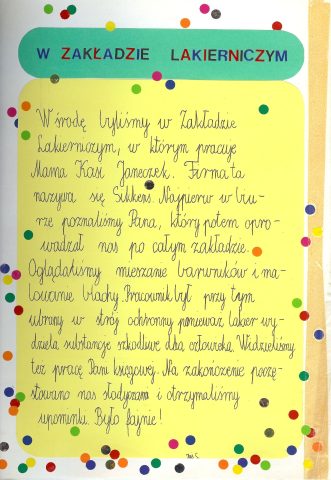 W ZAKŁADZIE LAKIERNICZYM
W środę byliśmy w Zakładzie
Lakierniczym, w którym pracuje
Mama Kasi Janeczek. Firma ta
nazywa się Sikkens. Najpierw w biu-
rze poznaliśmy Pana, który potem opro-
wadzał nas po całym zakładzie.
Oglądaliśmy mieszanie barwników i ma-
lowanie blachy. Pracownik był przy tym
ubrany w strój ochronny ponieważ lakier wy-
dziela substancje szkodliwe dla człowieka. Widzieliśmy
też pracę Pani księgowej. Na zakończenie poczę-
stowano nas słodyczami i otrzymaliśmy
upominki. Było fajnie!